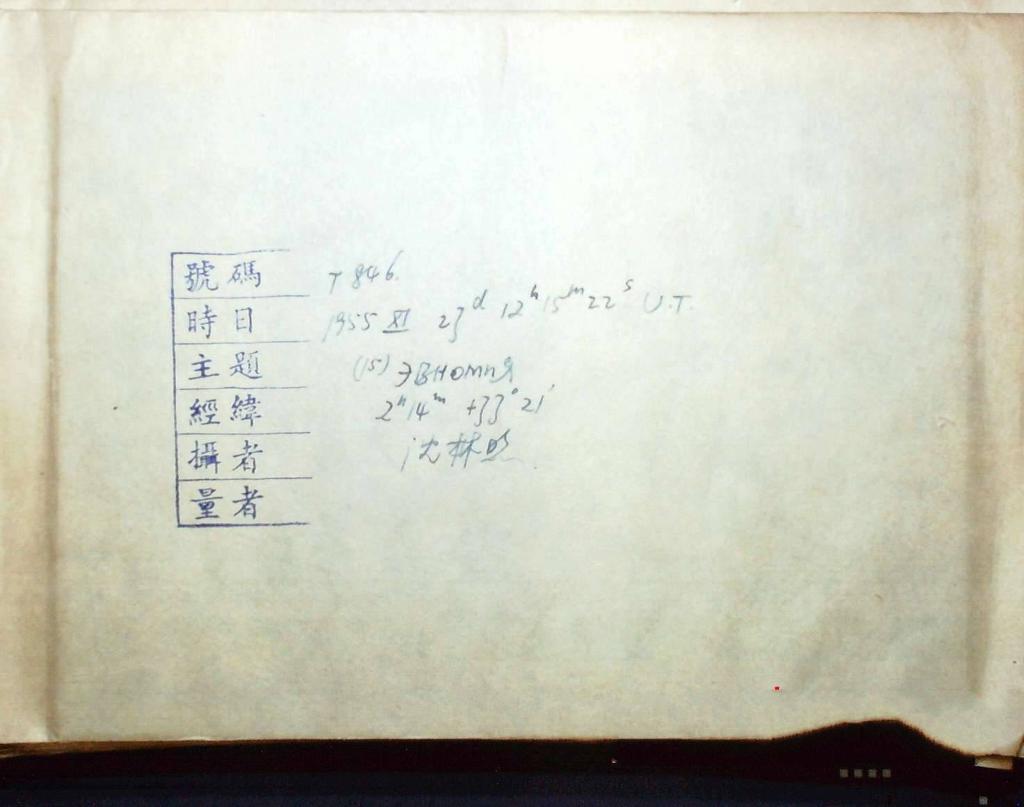 號碼 T 846.
時日 1955 XI 23ᵈ 12ʰ 15ᵐ 22ˢ U.T.
主題 (15) ЭВНОМИЯ
經緯 2ʰ 14ᵐ +33° 21'
攝者 沈林照
量者